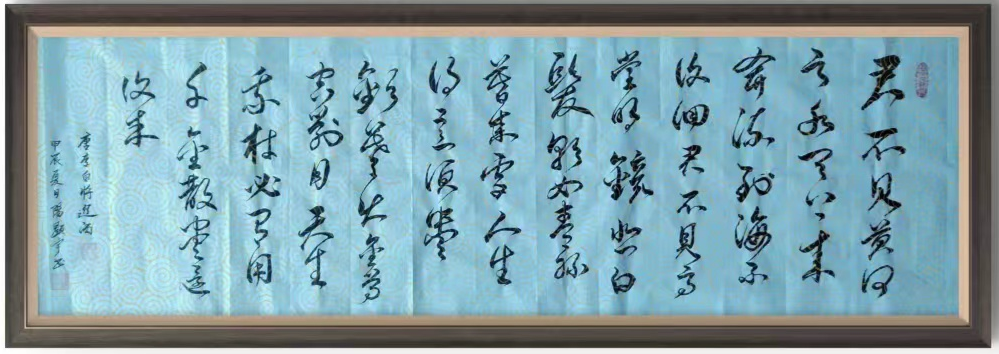 君不見黄河
之水天上来
奔流到海不
復回君不見高
堂明鏡悲白
髮朝如青絲
暮成雪人生
得意須盡
歡莫使金尊
空對月天生
我材必有用
千金散盡還
復来
唐李白將進酒
甲辰夏日